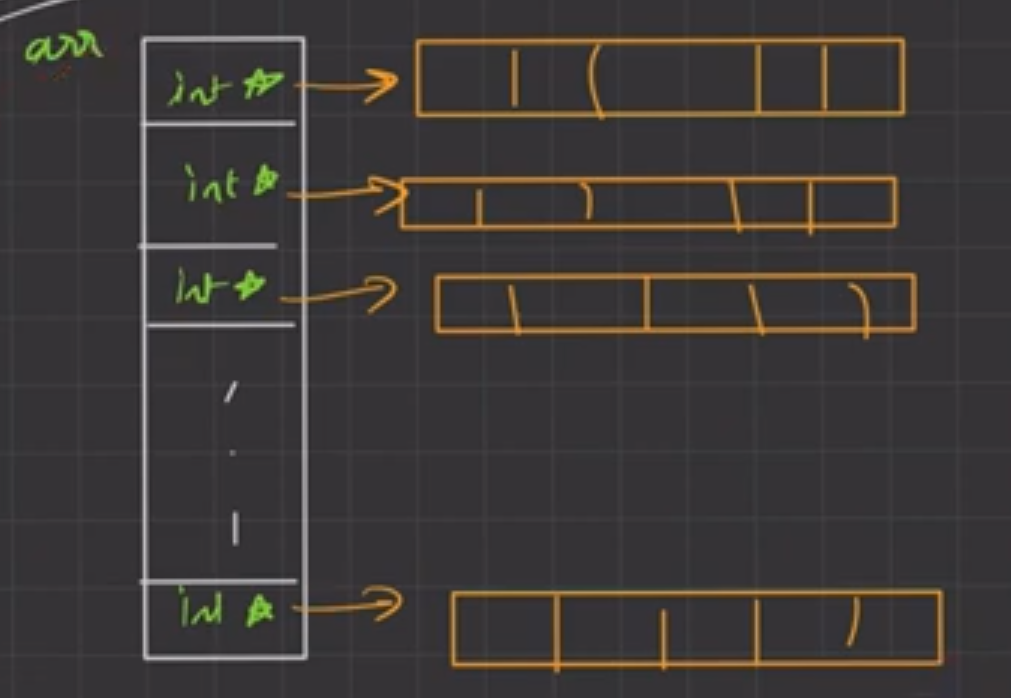 arr
int *
int *
int *
int *